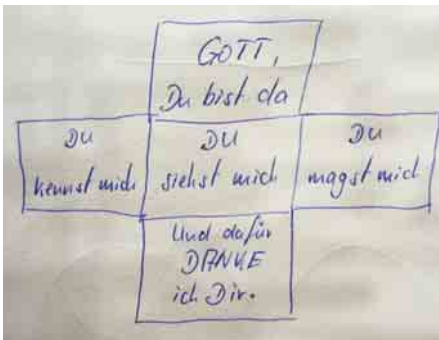 GOTT,
Du bist da
DU
kennst mich
DU
siehst mich
DU
magst mich
Und dafür
DANKE
ich Dir.